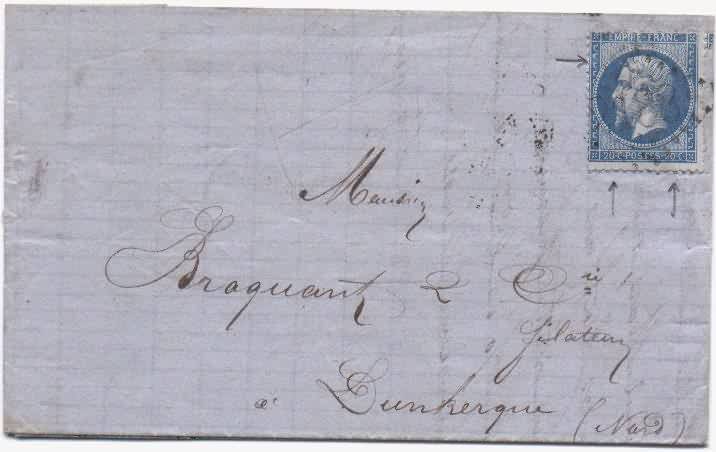 EMPIRE FRANC
20 C POSTES 20 C
Braquant & Cie
filateur
à Dunkerque
(Nord)